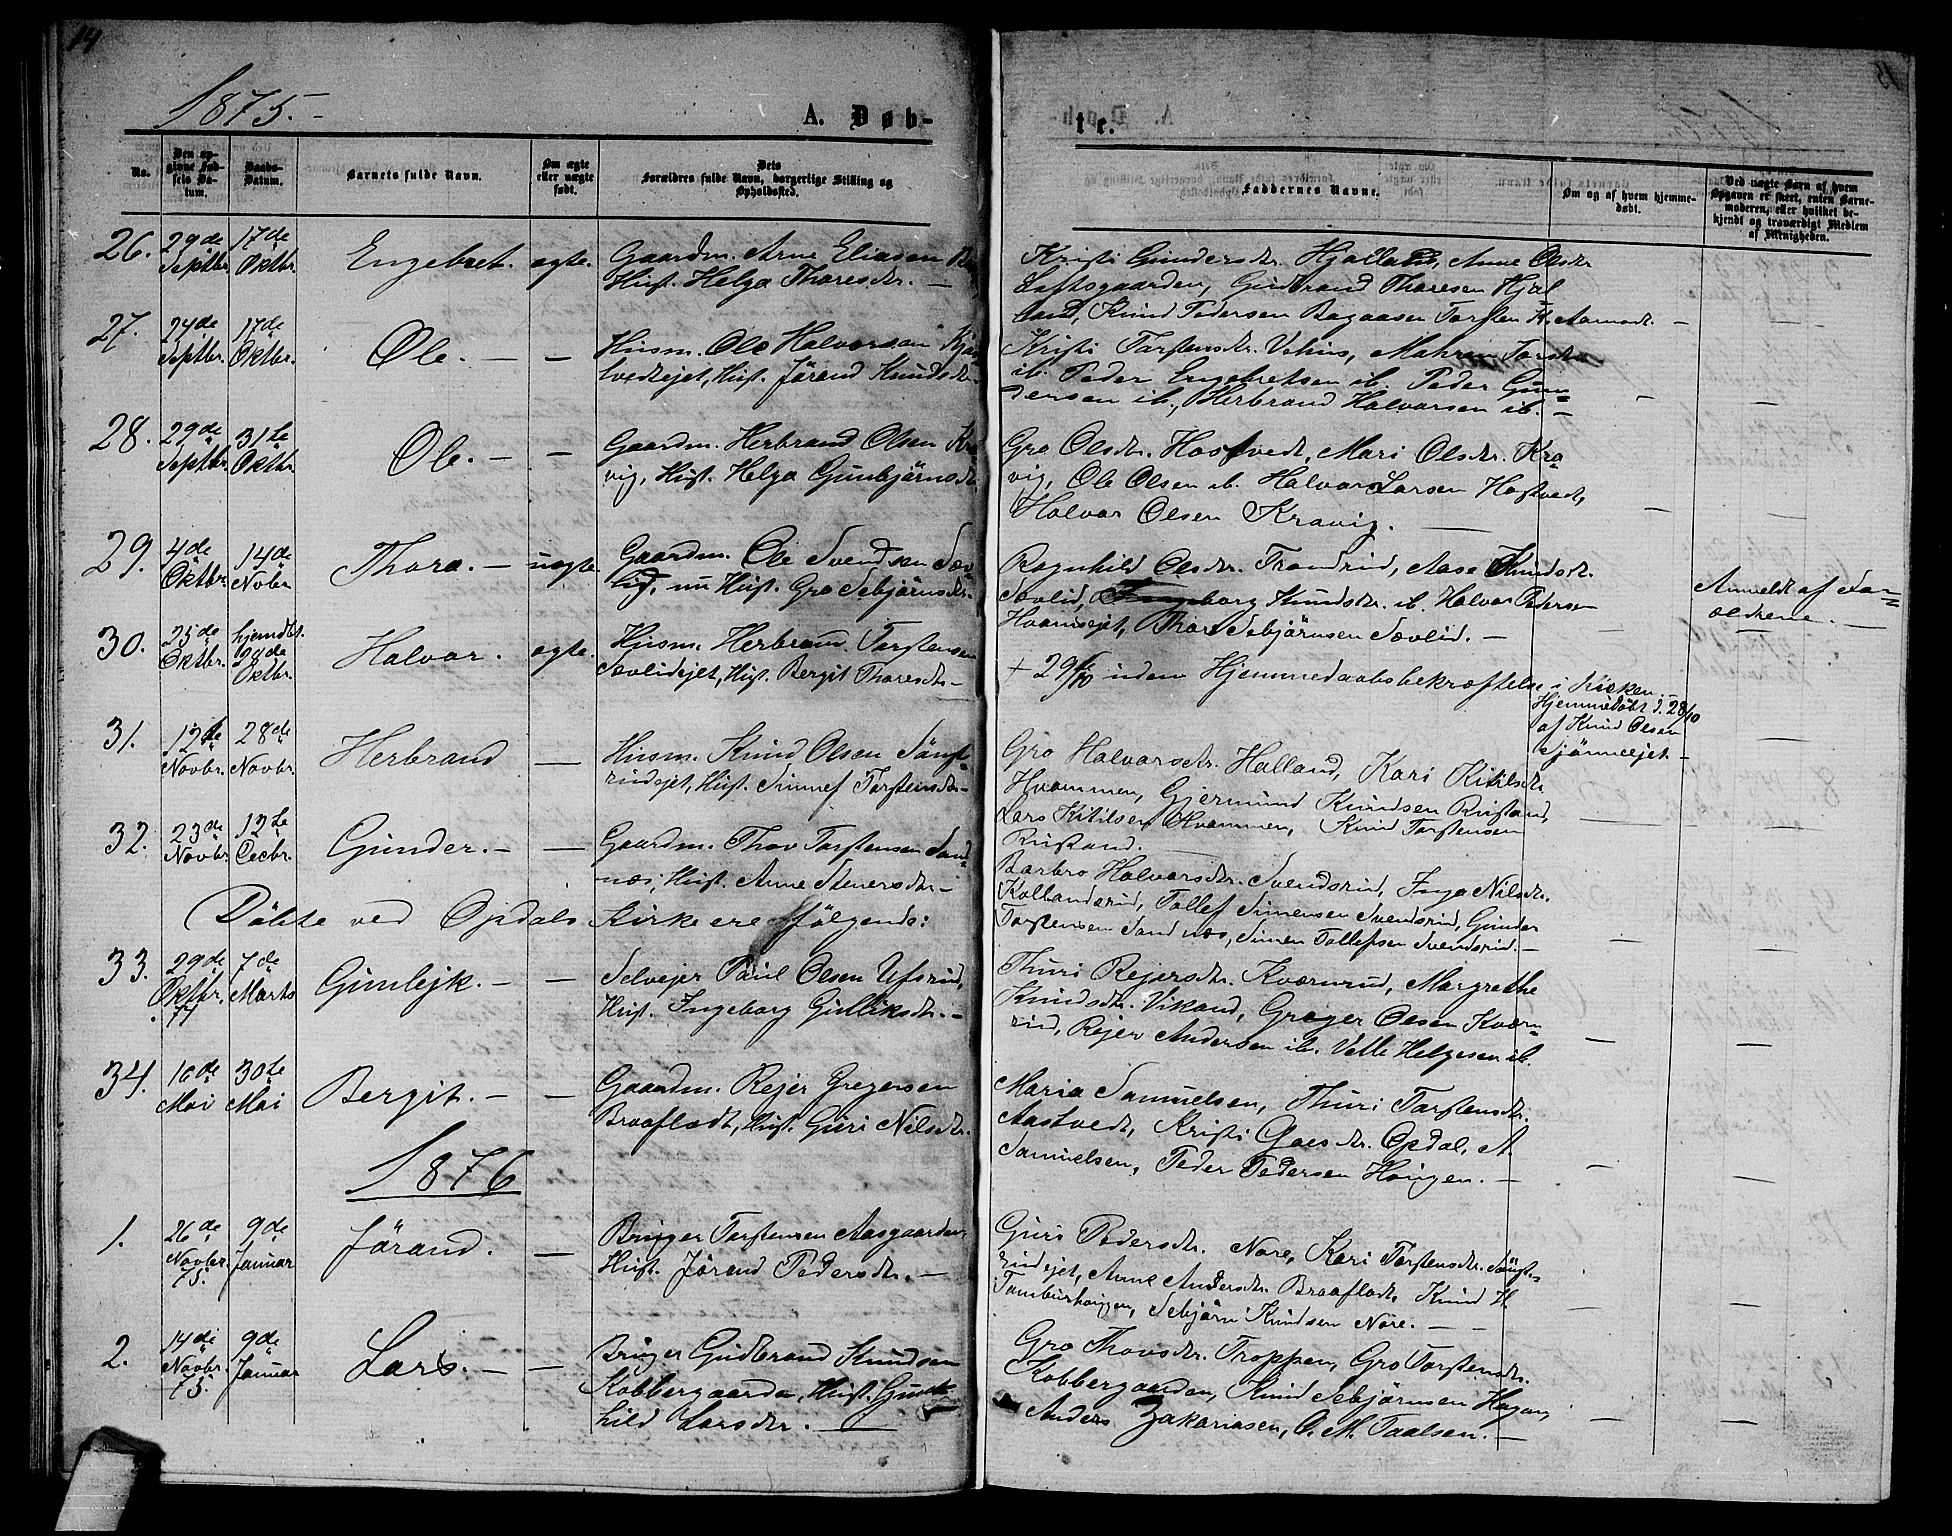 14
1875.-
A. Døb-
No.
Den opgivne Fødsels Datum.
Daabs-Datum.
Barnets fulde Navn.
Om ægte eller uægte født.
Dets Forældres fulde Navn, borgerlige Stilling og Opholdssted.
26. 29de Septbr. 17de Oktbr. Engebret. ægte. Gaardm. Arne Eliasen
Hust. Helga Thoresdtr. -
27. 24de Septbr. 17de Oktbr. Ole. - - Husm. Ole Halvorsen
Hust. Jörand Knudsdtr.
28. 29de Septbr. 31te Oktbr. Ole. - - Gaardm. Herbrand Olsen Kra-
vig, Hust. Helga Gunbjörnsdtr.
29. 4de Oktbr. 14de Novbr. Thora. - uægte. Gaardm. Ole Svendsen Sæv-
lid, nu Hust. Gro Sebjörnsdtr.
30. 25de Oktbr. hjemdbt. 28de Oktbr. Halvor. ægte. Husm. Herbrand Torstensen
Sævlidejet, Hust. Bergit Thoresdtr. -
31. 12te Novbr. 28de Novbr. Herbrand - Husm. Knud Olsen Söngt-
rudejet, Hust. Sunnef Torstensdtr. -
32. 23de Novbr. 12te Decbr. Gunder. - - Gaardm. Thov Torstensen Sand-
næs, Hust. Anne Stenersdtr. -
Döbte ved Opdals Kirke ere fölgende:
33. 29de Oktbr. 74 7de Marts Gunlejk. - - Selvejer Paul Olsen Ufsrud,
Hust. Ingeborg Gulliksdtr. -
34. 16de Mai 30te Mai Bergit. - - Gaardm. Rejer Gregersen
Braaflodt, Hust. Guri Nilsdtr.
1876
1. 26de Novbr. 75. 9de Januar Jörand. - Bruger Torstensen Aasgaarden,
Hust. Jörand Pedersdtr. -
2. 14de Novbr. 75. 9de Januar Lars. - - Bruger Gudbrand Knudsen
Kobbergaarden, Hust. Gun-
hild Larsdtr. -
te.
Faddernes Navne.
Om og af hvem hjemmedøbt.
Ved uægte Børn af hvem Opgaven er skeet, enten Barnemoderen, eller hvilket bekjendt og troværdigt Medlem af Menigheden.
Kristi Gundersdtr. Hjalland, Anne Olsdtr.
Loftsgaarden, Gudbrand Thoresen Hjal-
land, Knud Pedersen Bagaasen Torsten H. Aamodt. -
Kristi Torstensdtr. Vehus,
ib. Peder Engebretsen ib. Peder Gun-
dersen ib., Herbrand Halvorsen ib. -
Gro Olsdtr. Hostvedt, Mari Olsdtr. Kra-
vig, Ole Olsen ib. Halvor Larsen Hostvedt,
Halvor Olsen Kravig. -
Ragnhild Olsdtr. Trondrud, Aase Knudsdtr.
Sævlid, Ingeborg Knudsdtr. ib. Halvor Pedersen
Hvamsejet, Thore Sebjörnsen Sævlid. -
Anmeldt af For-
ældrene. -
+ 29/10 uden Hjemmedaabsbekræftelse i Kirken. -
Hjemmedöbt d. 28/10
af Knud Olsen
Gro Halvorsdtr. Halland, Kari Kitilsdtr.
Hvammen, Gjermund Knudsen Rustand,
Lars Kitilsen Hvammen, Knud Torstensen
Rustand. -
Barbro Halvorsdtr. Svendsrud, Inga Nilsdtr.
Kollandsrud, Tollef Simensen Svendsrud, Gunder
Torstensen Sandnæs, Simen Tollefsen Svendsrud. -
Thuri Rejersdtr. Kværnrud, Margrethe
Knudsdtr. Vikand, Greger Olsen Kværn-
rud, Rejer Andersen ib. Vetle Helgesen ib.
Maria Samuelsen, Thuri Torstensdtr.
Aastvedt, Kristi Goesdtr. Opdal, A.
Samuelsen, Peder Pedersen Haugen. -
Guri Pedersdtr. Nore, Kari Torstensdtr. Söngt-
rudejet, Anne Andersdtr. Braaflodt, Knud H.
Tamburhaugen, Sebjörn Knudsen Nore. - -
Gro Thovsdtr. Troppen, Gro Torstensdtr.
Kobbergaarden, Knud Sebjörnsen Hagan,
Anders Zakariasen, O. M. Paalsen. -